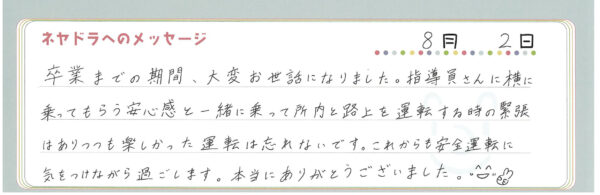 ネヤドラへのメッセージ
8月 2日
卒業までの期間、大変お世話になりました。指導員さんに横に
乗ってもらう安心感と一緒に乗って所内と路上を運転する時の緊張
はありつつも楽しかった運転は忘れないです。これからも安全運転に
気をつけながら過ごします。本当にありがとうございました。